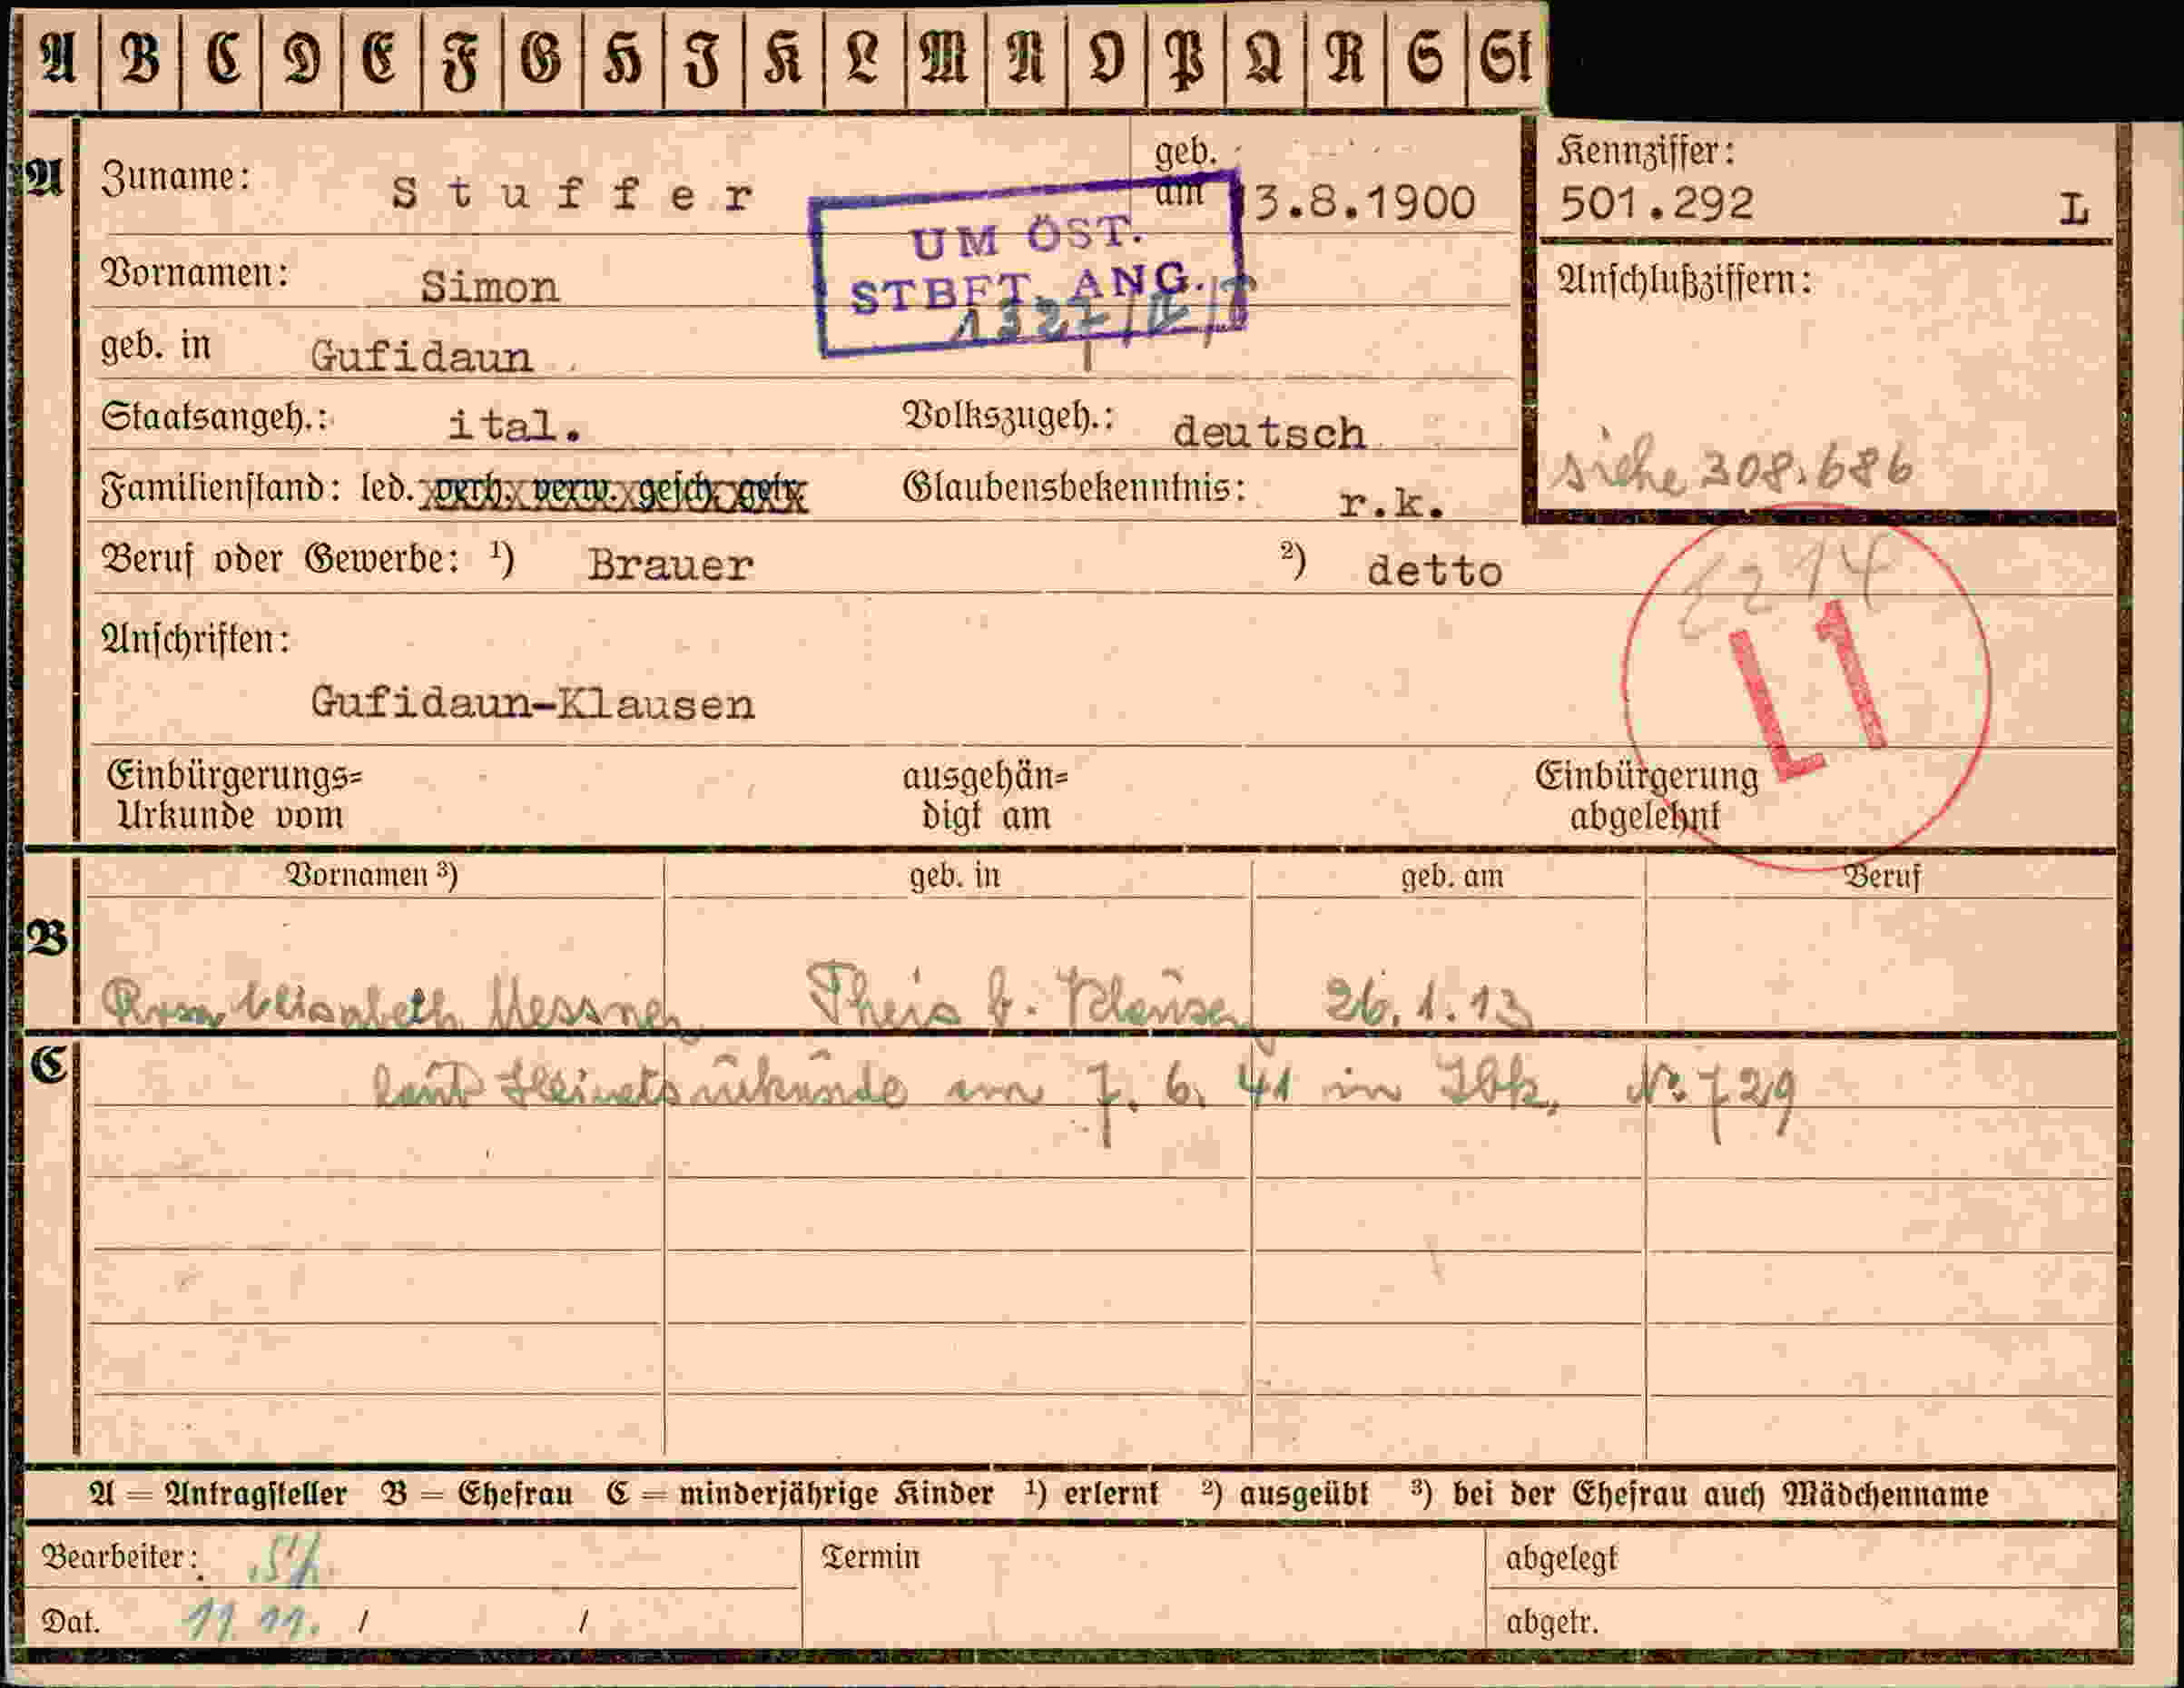 A B C D E F G H I K L M N O P Q R S St
A Zuname: Stuffer geb. am 13.8.1900
Kennziffer:
501.292 L
UM ÖST.
STBFT. ANG.
Vornamen: Simon
Anschlußziffern:
geb. in Gufidaun
Staatsangeh.: ital. Volkszugeh.: deutsch
siehe 308.686
Familienstand: led. verh. verw. gesch. getr. Glaubensbekenntnis: r.k.
Beruf oder Gewerbe: ¹) Brauer ²) detto
Anschriften:
L1
Gufidaun-Klausen
Einbürgerungs= ausgehän= Einbürgerung
Urkunde vom digt am abgelehnt
Vornamen ³) geb. in geb. am Beruf
B
Rosa Elisabeth Messner Theis b. Klausen 26.1.13
C
laut Heiratsurkunde am 7. 6. 41 in Ibk. Nr. 729
A = Antragsteller B = Ehefrau C = minderjährige Kinder ¹) erlernt ²) ausgeübt ³) bei der Ehefrau auch Mädchenname
Bearbeiter: Termin abgelegt
Dat. 11. 11. / / abgetr.